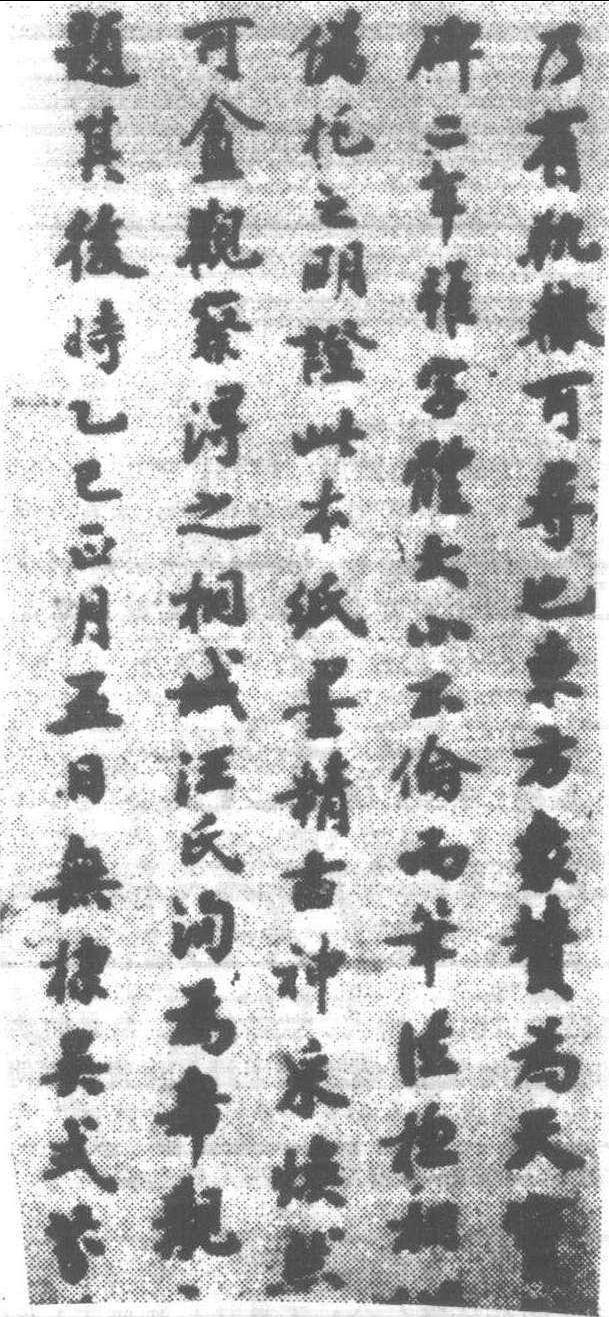 乃有軌轍可尋也東方象贊為天寶
碑二年雖字體大小不倫而筆法極相
偽托之明證此本紙墨精古神采煥
可盦觀察得之桐城汪氏洵為希覯
題其後時乙巳正月五日無棣吳式芬